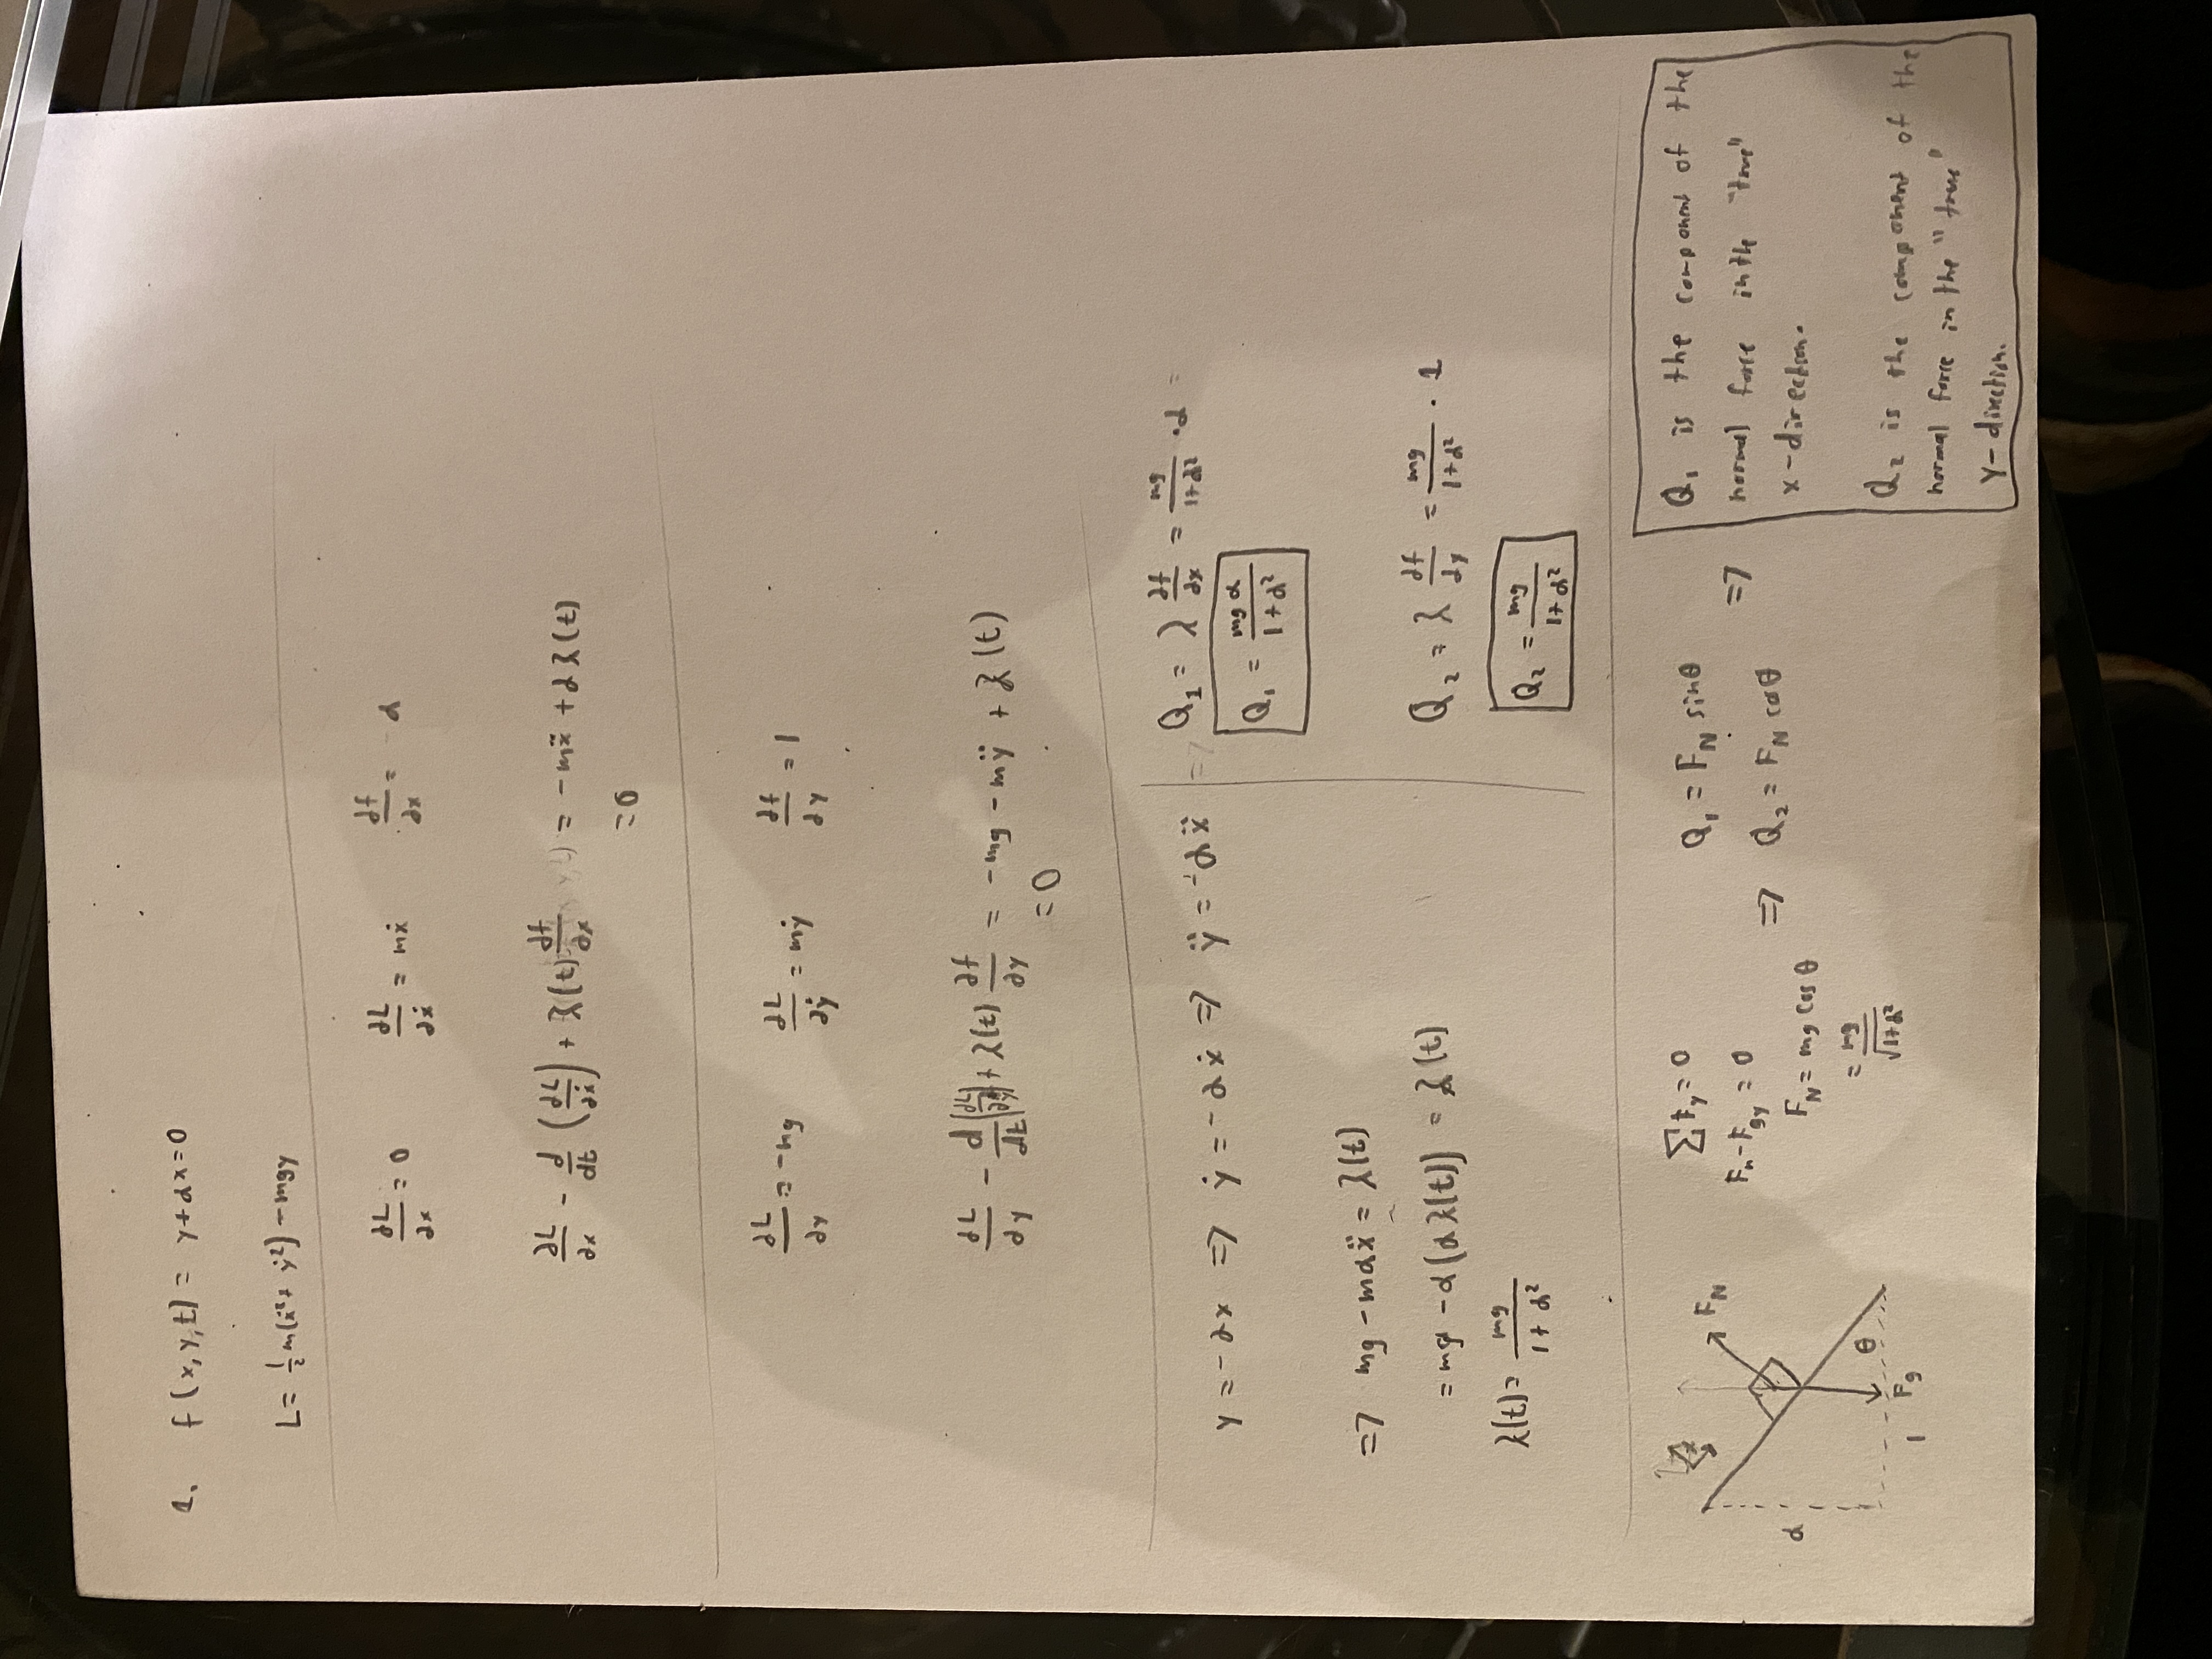 1. f(x,y,t) = y+αx=0
L= 1/2 m(ẋ²+ ẏ²) -mgy
∂L/∂x = 0 ∂L/∂ẋ = mẋ ∂f/∂x = α
∂L/∂x - d/dt (∂L/∂ẋ) + λ(t) ∂f/∂x = -mẍ + αλ(t)
=0
∂L/∂y = -mg ∂L/∂ẏ = mẏ ∂f/∂y = 1
∂L/∂y - d/dt (∂L/∂ẏ) + λ(t) ∂f/∂y = -mg - mÿ + λ(t)
=0
y = -αx => ẏ = -αẋ => ÿ = -αẍ =>
=> mg - mαẍ = λ(t)
= mg - α(αλ(t)) = λ(t)
λ(t) = mg/(1+α²)
Q₁ = λ ∂f/∂x = mg/(1+α²) · α =
Q₁ = mgα/(1+α²)
Q₂ = λ ∂f/∂y = mg/(1+α²) · 1
Q₂ = mg/(1+α²)
α
1
θ
F_N
F_g
∑F_y = 0
F_n - F_gy = 0
F_N = mg cos θ
= mg/√(1+α²)
=> Q₁ = F_N sinθ
Q₂ = F_N cosθ
=>
Q₁ is the component of the
normal force in the "true"
x-direction.
Q₂ is the component of the
normal force in the "true"
y-direction.